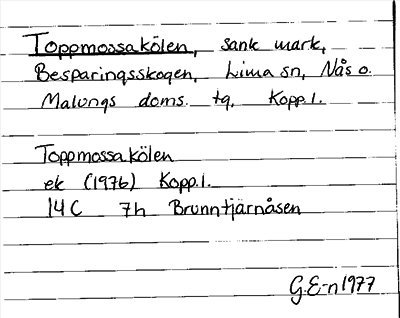 Toppmossakölen, sank mark,
Besparingsskogen, Lima sn, Nås o.
Malungs doms. tg, Kopp. l.
Toppmossakölen
ek (1976) Kopp. l.
14 C 7h Brunntjärnåsen
G.E-n 1977